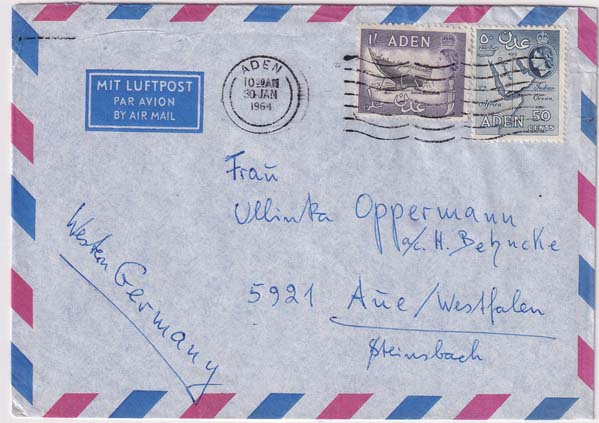 MIT LUFTPOST
PAR AVION
BY AIR MAIL
ADEN
10 30 AM
30 JAN
1964
1/- ADEN
عدن
٥٠ عدن
Indian
Ocean
Africa
ADEN 50
CENTS
Frau
Ullinka Oppermann
a/c. H. Behncke
5921 Aue/Westfalen
Steinsbach
Western Germany